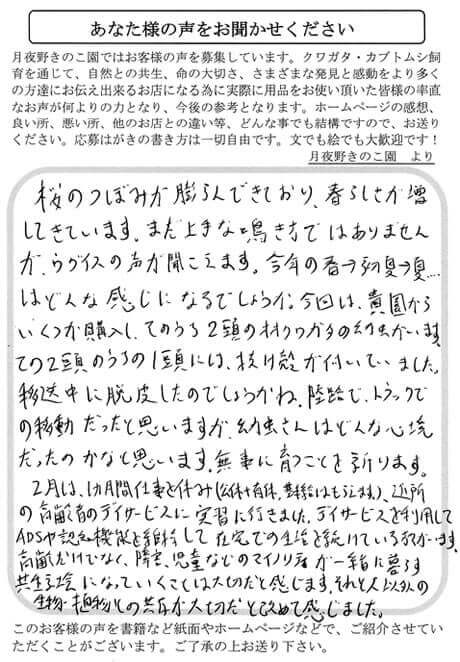 あなた様の声をお聞かせください
月夜野きのこ園ではお客様の声を募集しています。クワガタ・カブトムシ飼
育を通じて、自然との共生、命の大切さ、さまざまな発見と感動をより多く
の方達にお伝え出来るお店になる為に実際に用品をお使い頂いた皆様の率直
なお声が何よりの力となり、今後の参考となります。ホームページの感想、
良い所、悪い所、他のお店との違い等、どんな事でも結構ですので、お送り
ください。応募はがきの書き方は一切自由です。文でも絵でも大歓迎です！
月夜野きのこ園　より
桜のつぼみが膨らんできており、春らしさが増
してきています。まだ上手な鳴き方ではありません
が、ウグイスの声が聞こえます。今年の春→初夏→夏…
はどんな感じになるでしょうか。今回は、貴園から
いくつか購入し、そのうち2頭のオオクワガタの幼虫がいます。
その2頭のうちの1頭には、抜け殻が付いていました。
移送中に脱皮したのでしょうかね。陸路で、トラックで
の移動だったと思いますが、幼虫さんはどんな心境
だったのかなと思います。無事に育つことを祈ります。
2月は、1カ月間仕事を休み(公休+有休、)、近所
の高齢者のデイサービスに実習に行きました。デイサービスを利用して
ADSや認知機能を維持して在宅での生活を続けている方がいます。
高齢だけでなく、障害、児童などのマイノリティが一緒に暮らす
共生社会になっていくことは大切だと感じます。それと人以外の
生物・植物との共存が大切だと改めて感じました。
このお客様の声を書籍など紙面やホームページなどで、ご紹介させていた
だくことがございます。ご了承の上お送り下さい。